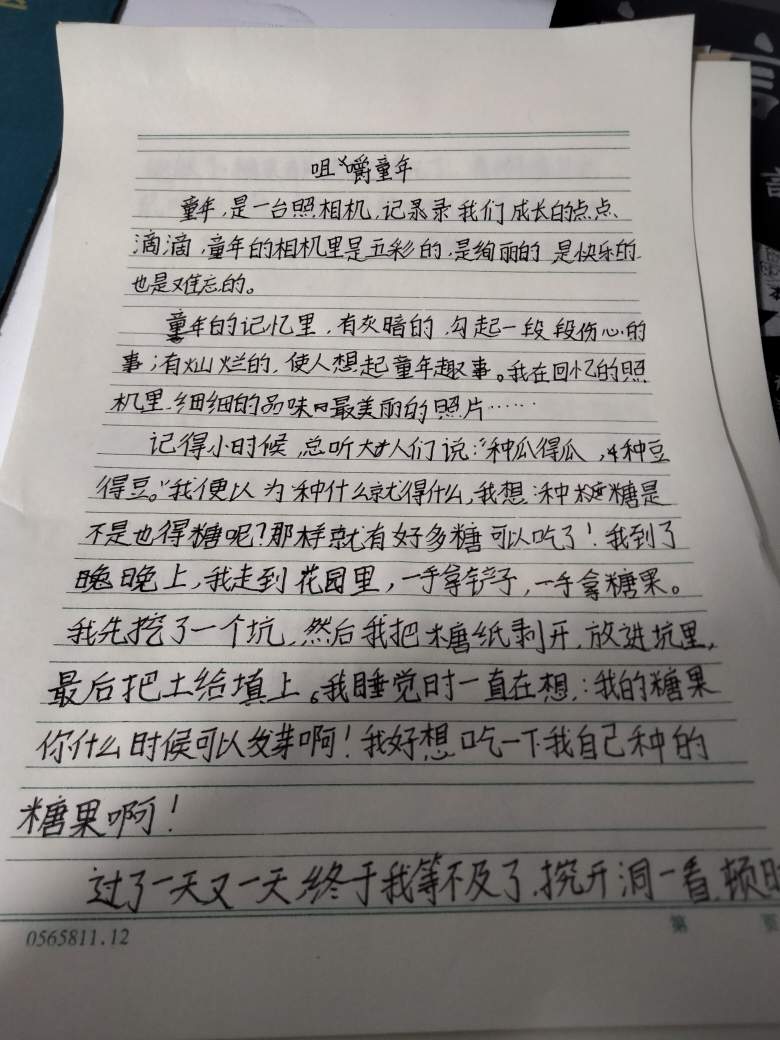 咀嚼童年
童年,是一台照相机,记录我们成长的点点、
滴滴,童年的相机里是五彩的,是绚丽的 是快乐的
也是难忘的。
童年的记忆里,有灰暗的,勾起一段段伤心的
事;有灿烂的,使人想起童年趣事。我在回忆的照
机里,细细的品味最美丽的照片……
记得小时候,总听大人们说:“种瓜得瓜,种豆
得豆。”我便以为种什么就得什么,我想:种糖是
不是也得糖呢?那样就有好多糖可以吃了!我到了
晚上,我走到花园里,一手拿铲子,一手拿糖果。
我先挖了一个坑,然后我把糖纸剥开,放进坑里,
最后把土给填上。我睡觉时一直在想:我的糖果
你什么时候可以发芽啊!我好想吃一下我自己种的
糖果啊!
过了一天又一天,终于我等不及了,挖开洞一看,顿时
0565811.12
第 页